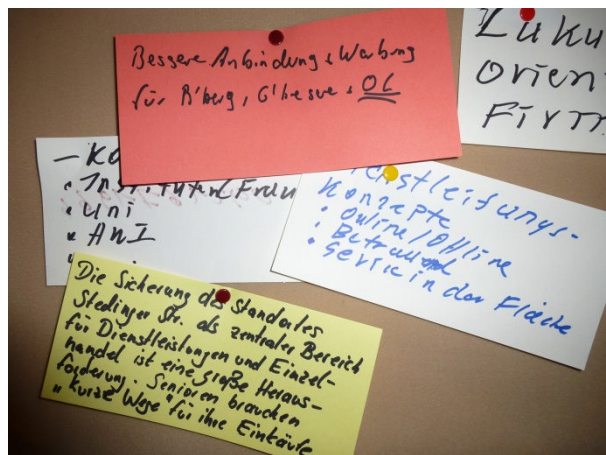 Bessere Anbindung & Werbung
für B'berg, G'hesue & OL
Zuku
Orien
Firm
- Ko
• Institute / Frau
• Uni
• AnI
stleistungs-
Konzepte
• Online / Offline
• Betreuend
• Service in der Fläche
Die Sicherung des Standortes
Stedinger Str. als zentraler Bereich
für Dienstleistungen und Einzel-
handel ist eine große Heraus-
forderung. Senioren brauchen
"kurze Wege" für ihre Einkäufe